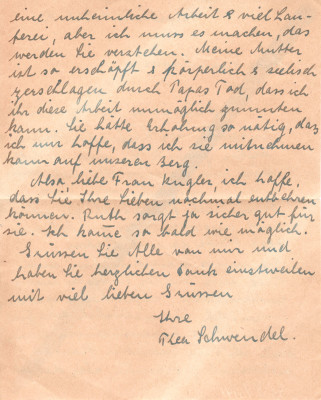 eine unheimliche Arbeit & viel Lau-
ferei, aber ich muss es machen, das
werden Sie verstehen. Meine Mutter
ist so erschöpft & körperlich & seelisch
zerschlagen durch Papas Tod, dass ich
ihr diese Arbeit unmöglich zumuten
kann. Sie hätte Erholung so nötig, daß
ich nur hoffe, dass ich sie mitnehmen
kann auf unseren Berg.
Also liebe Frau Kugler, ich hoffe,
dass Sie Ihre Lieben nochmal entbehren
können. Ruth sorgt ja sicher gut für
sie. Ich komme so bald wie möglich.
Grüssen Sie Alle von mir und
haben Sie herzlichen Dank einstweilen
mit viel lieben Grüssen
Ihre
Thea Schwendel.